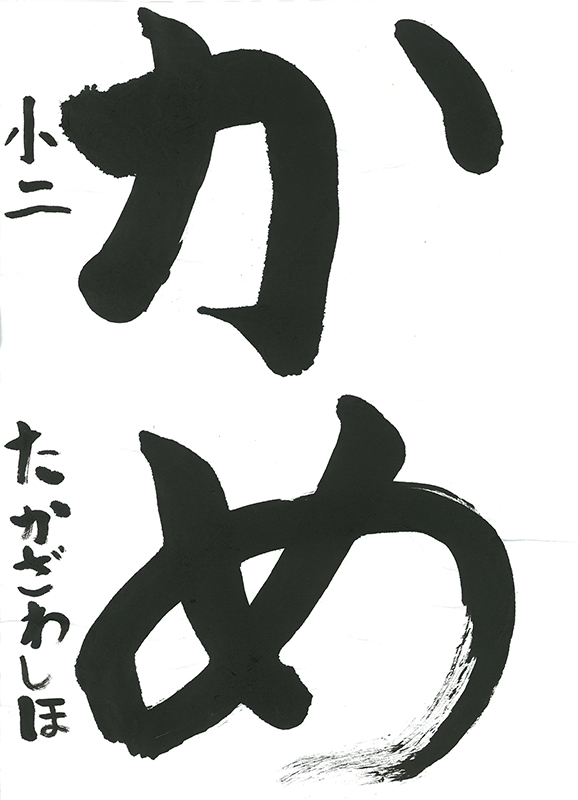 かめ
小二
たかざわしほ